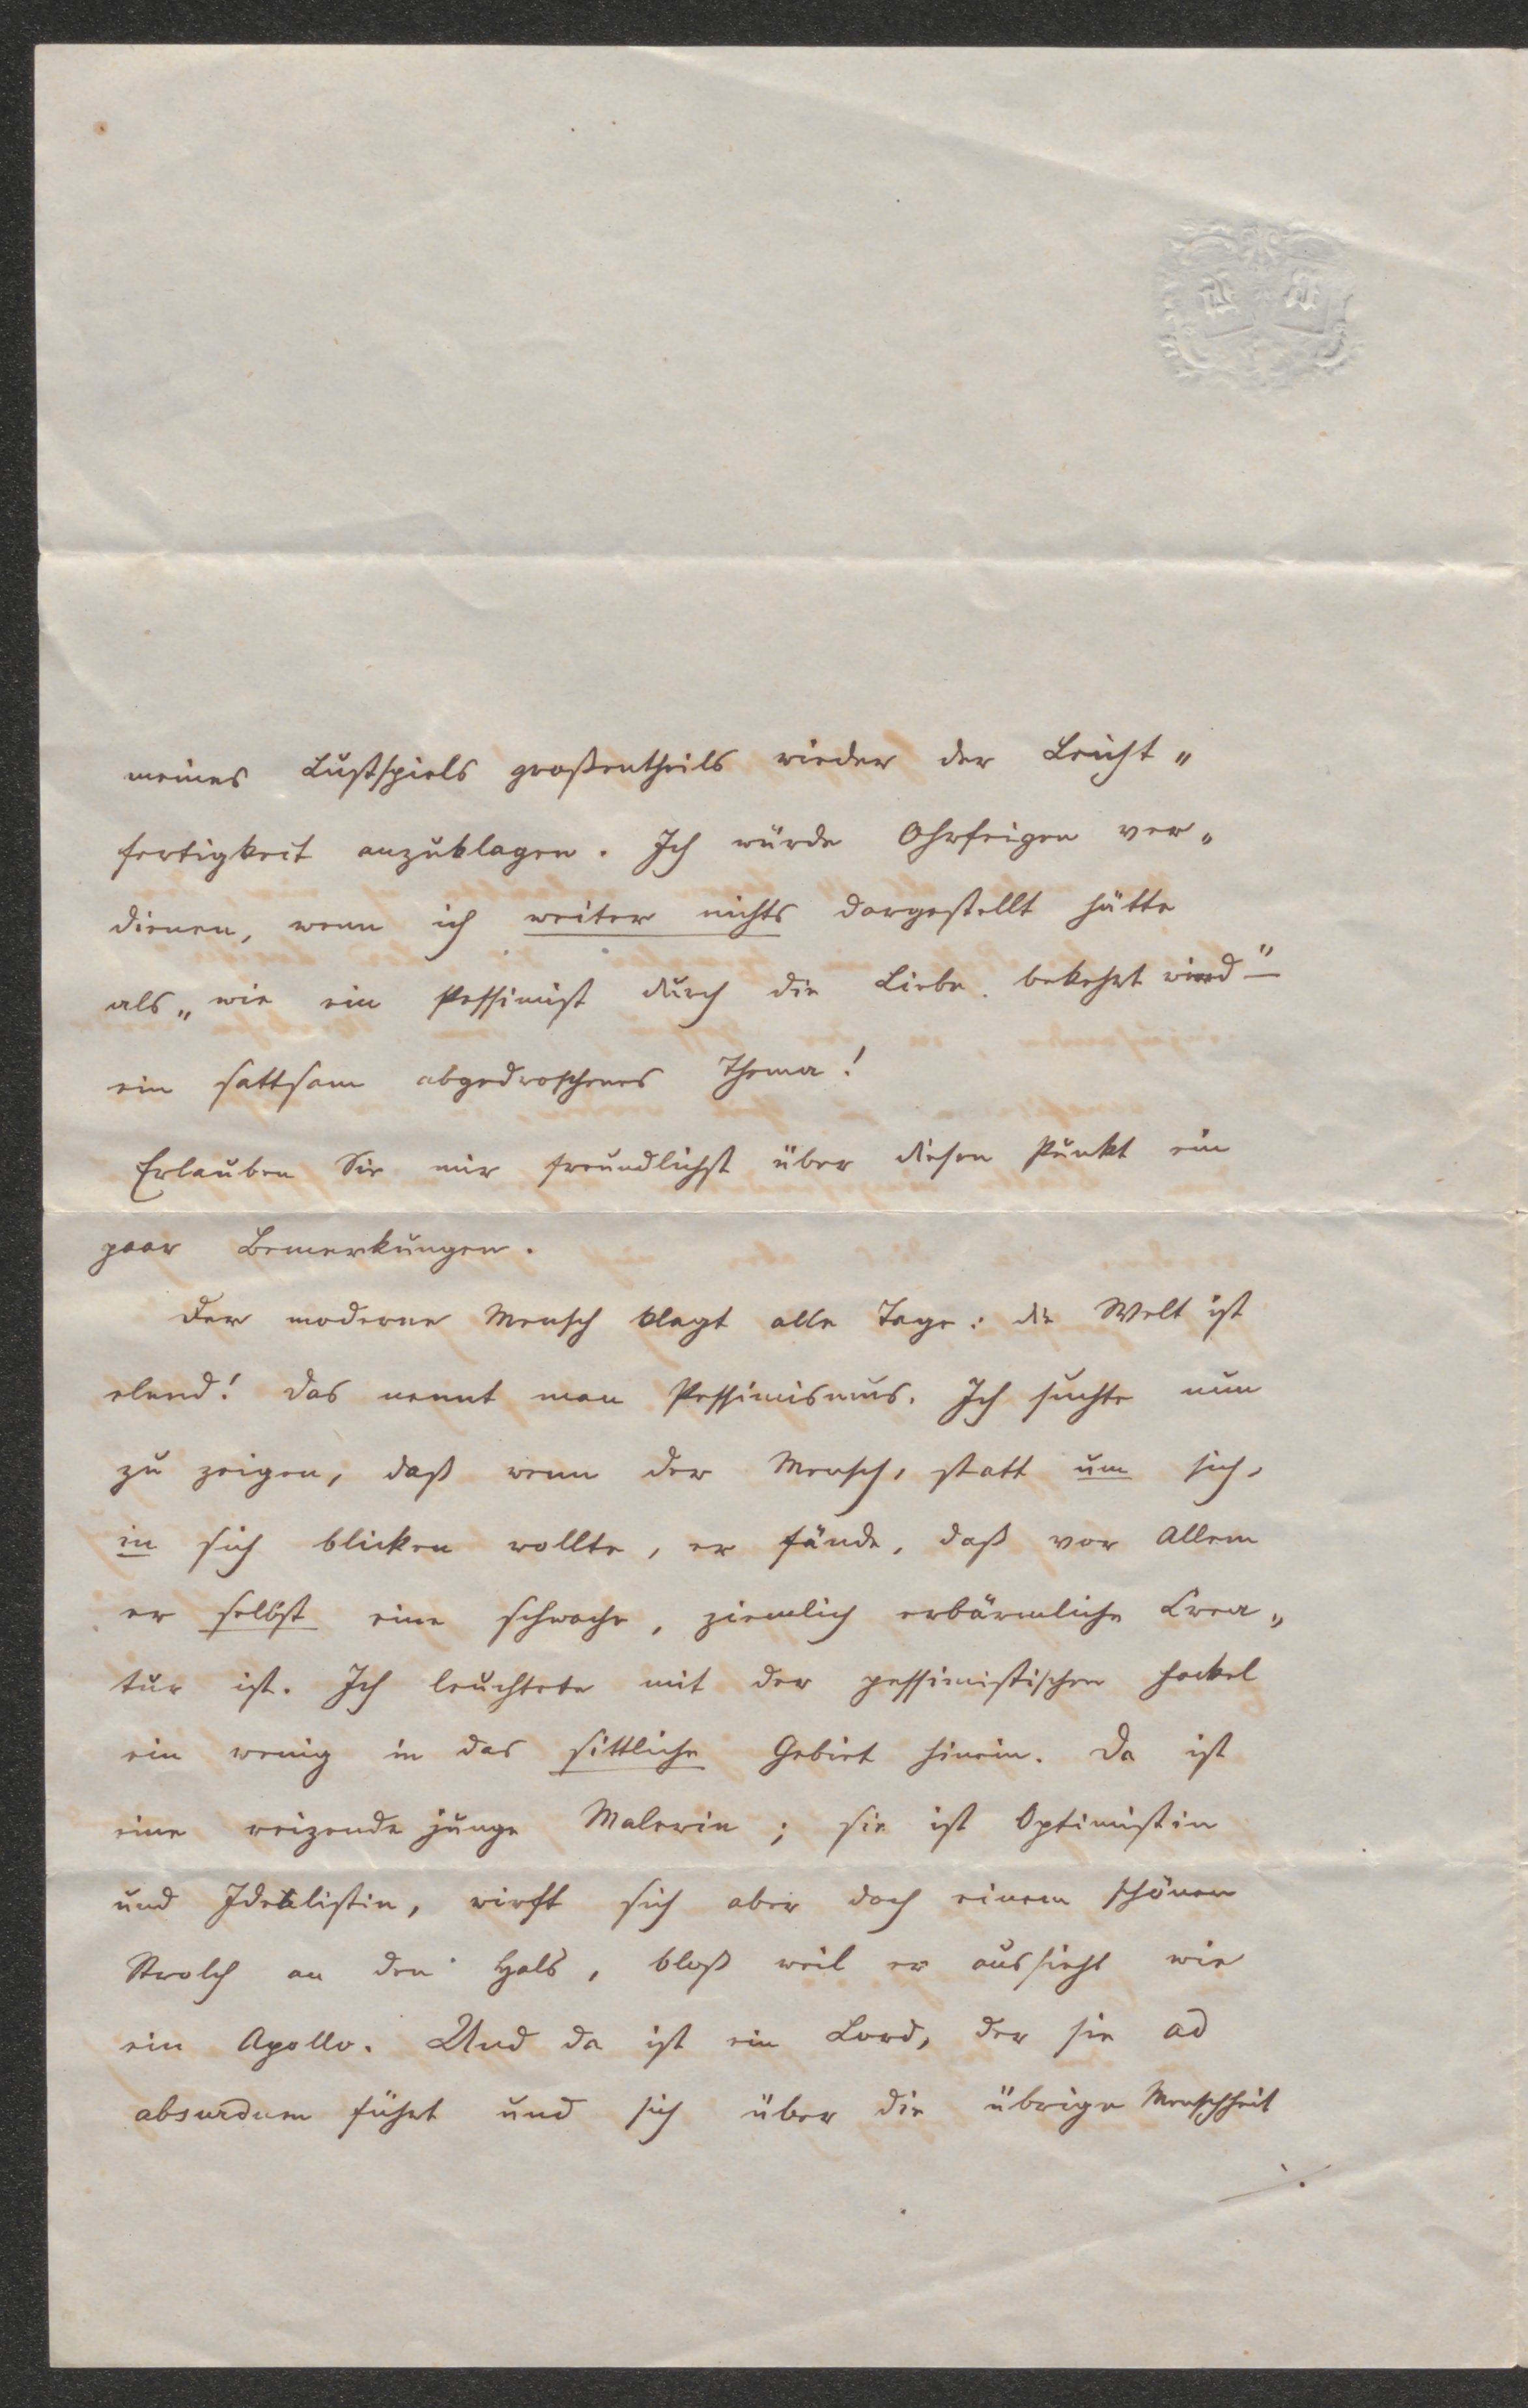 meines Lustspiels großentheils wieder der Leicht„
fertigkeit anzuklagen. Ich würde Ohrfeigen ver„
dienen, wenn ich weiter nichts dargestellt hätte
als „wie ein Pessimist durch die Liebe bekehrt wird“ –
ein sattsam abgedroschenes Thema!
Erlauben Sie mir freundlichst über diesen Punkt ein
paar Bemerkungen.
Der moderne Mensch klagt alle Tage: die Welt ist
elend! Das nennt man Pessimismus. Ich suchte nun
zu zeigen, daß wenn der Mensch, statt um sich,
in sich blicken wollte, er fände, daß vor Allem
er selbst eine schwache, ziemlich erbärmliche Crea„
tur ist. Ich leuchtete mit der pessimistischen Fackel
ein wenig in das sittliche Gebiet hinein. Da ist
eine reizende junge Malerin; sie ist Optimistin
und Idealistin, wirft sich aber doch einem schönen
Strolch an den Hals, bloß weil er aussieht wie
ein Apollo. Und da ist ein Lord, der sie ad
absurdum führt und sich über die übrige Menschheit
./.